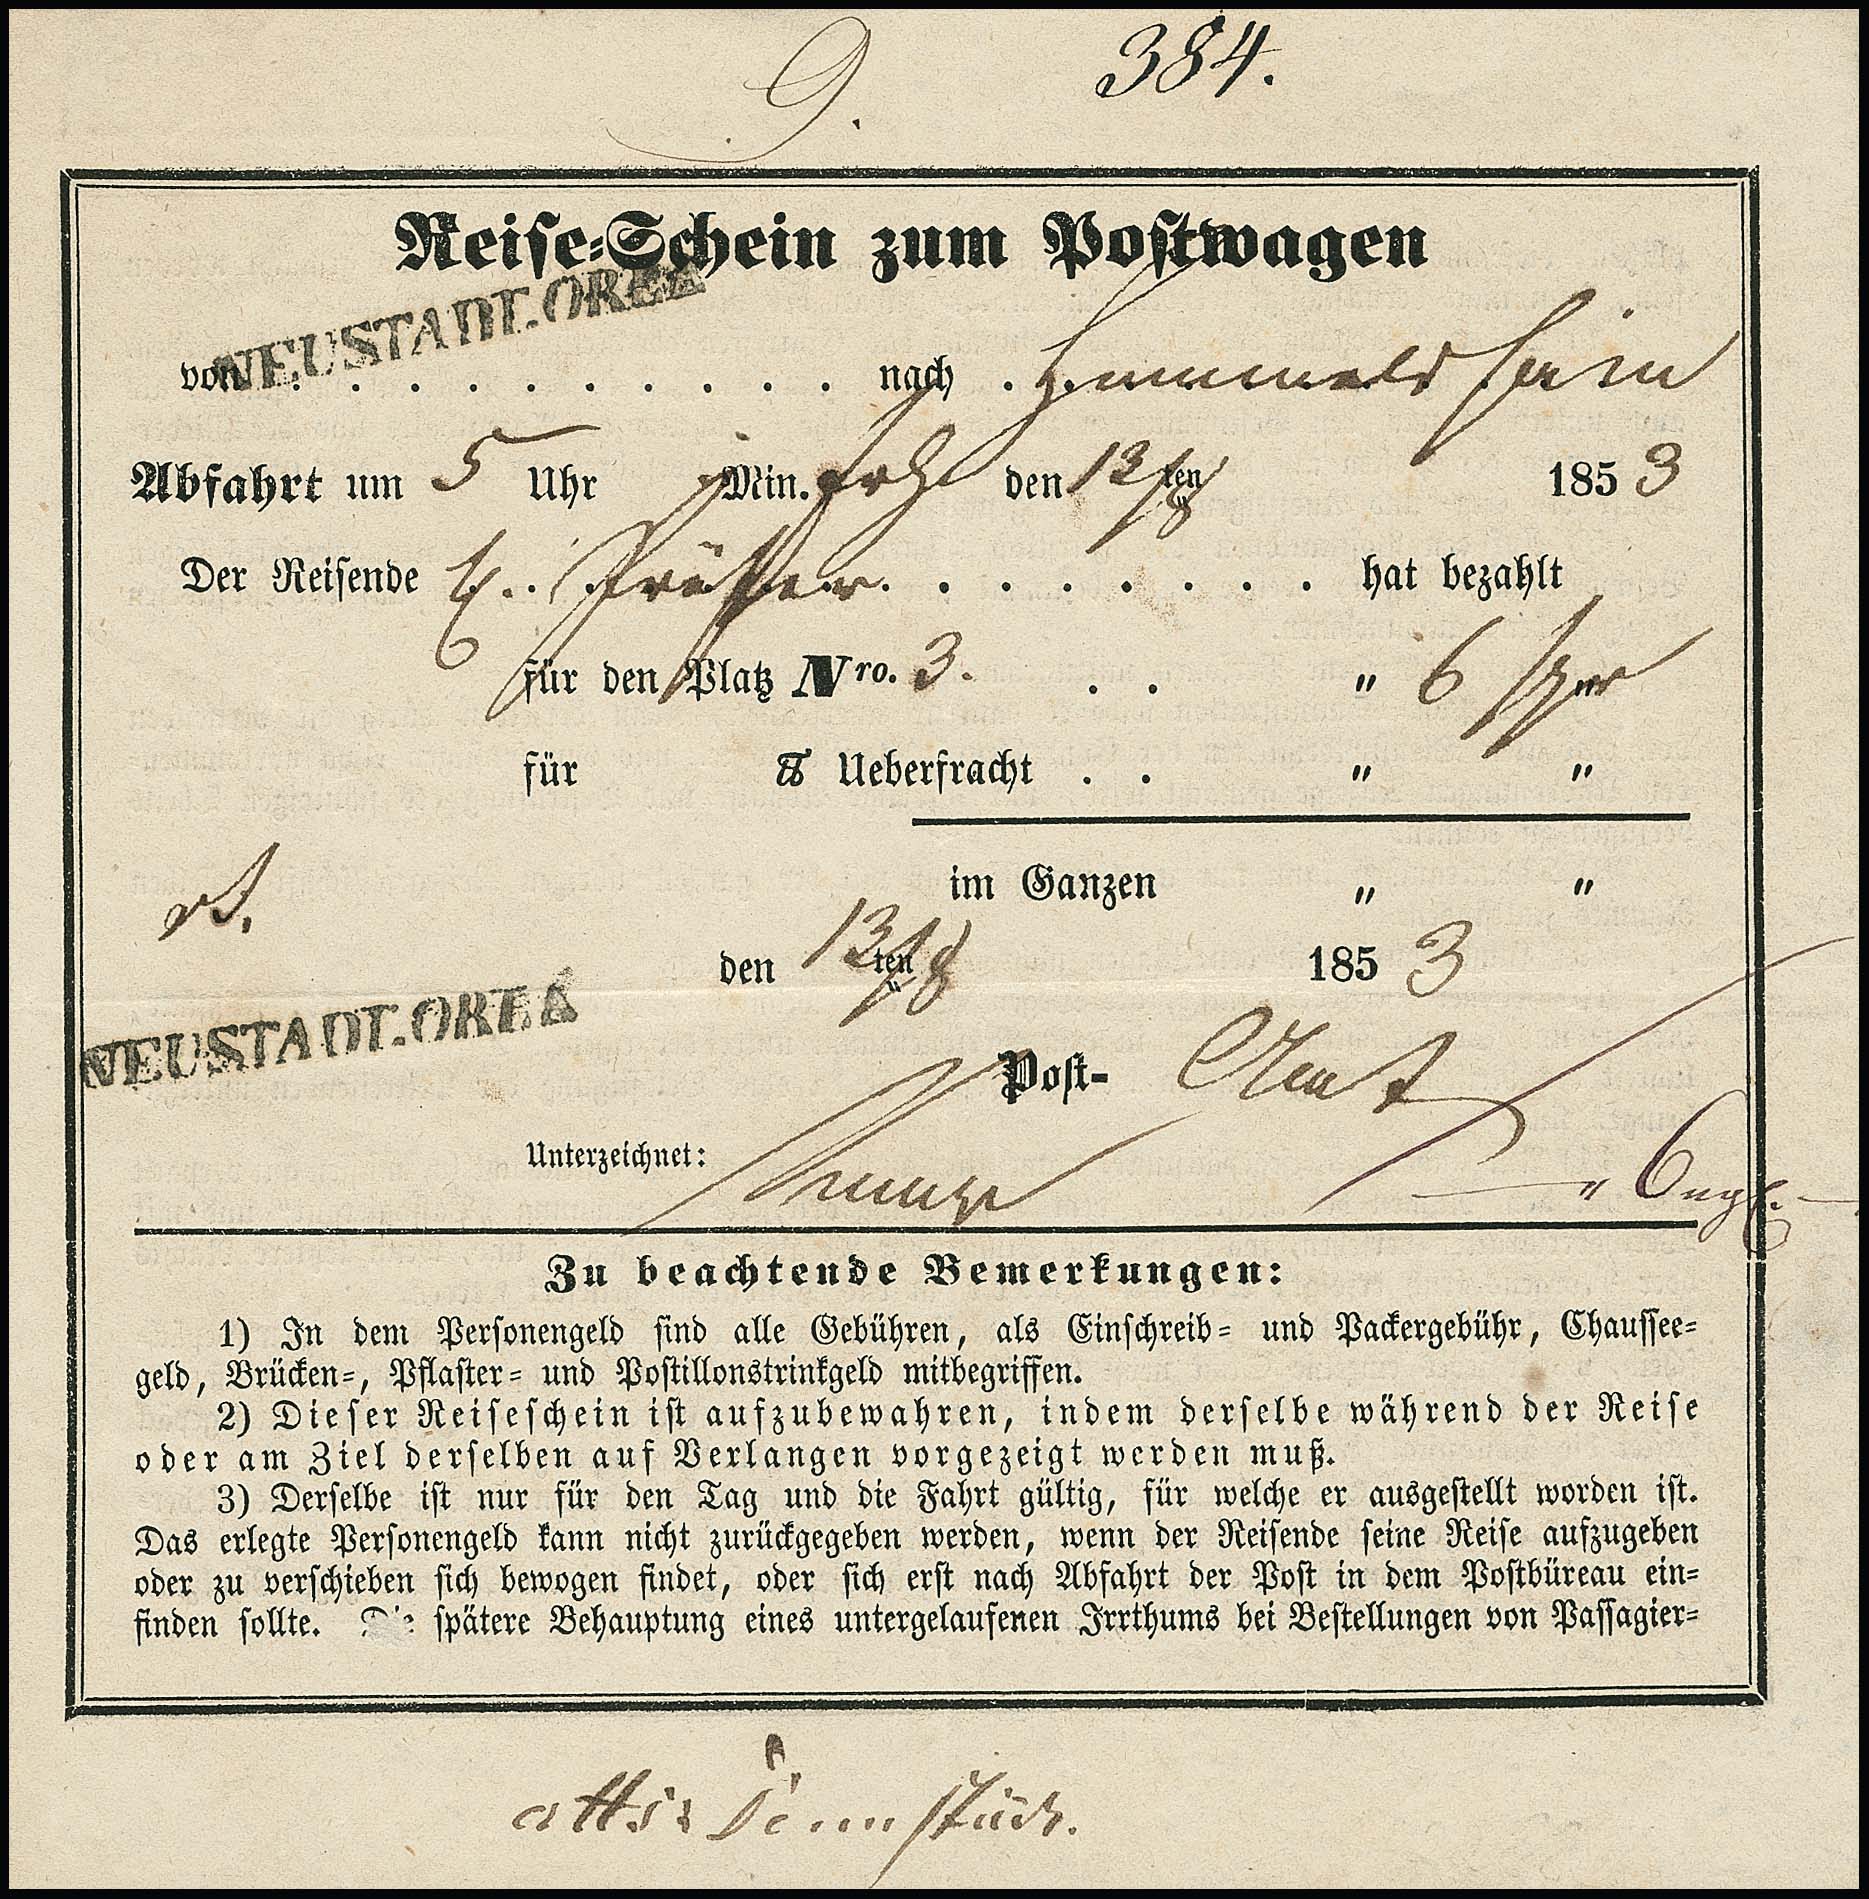 9. 384.
Reise-Schein zum Postwagen
NEUSTADT.ORLA
von . . . . . . . . . . nach . Hummelshain
Abfahrt um 5 Uhr Min. frh den 13/8 ten 1853
Der Reisende . . . . . . . . hat bezahlt
für den Platz Nro. 3. . . " 6 sgr
für ℔ Ueberfracht . . " "
im Ganzen " "
den 13/8 ten 1853
NEUSTADT.ORLA
Post- Amt
Unterzeichnet:
" 6 ngl.
Zu beachtende Bemerkungen:
1) In dem Personengeld sind alle Gebühren, als Einschreib- und Packergebühr, Chaussee-
geld, Brücken-, Pflaster- und Postillonstrinkgeld mitbegriffen.
2) Dieser Reiseschein ist aufzubewahren, indem derselbe während der Reise
oder am Ziel derselben auf Verlangen vorgezeigt werden muß.
3) Derselbe ist nur für den Tag und die Fahrt gültig, für welche er ausgestellt worden ist.
Das erlegte Personengeld kann nicht zurückgegeben werden, wenn der Reisende seine Reise aufzugeben
oder zu verschieben sich bewogen findet, oder sich erst nach Abfahrt der Post in dem Postbüreau ein-
finden sollte. Die spätere Behauptung eines untergelaufenen Irrthums bei Bestellungen von Passagier-